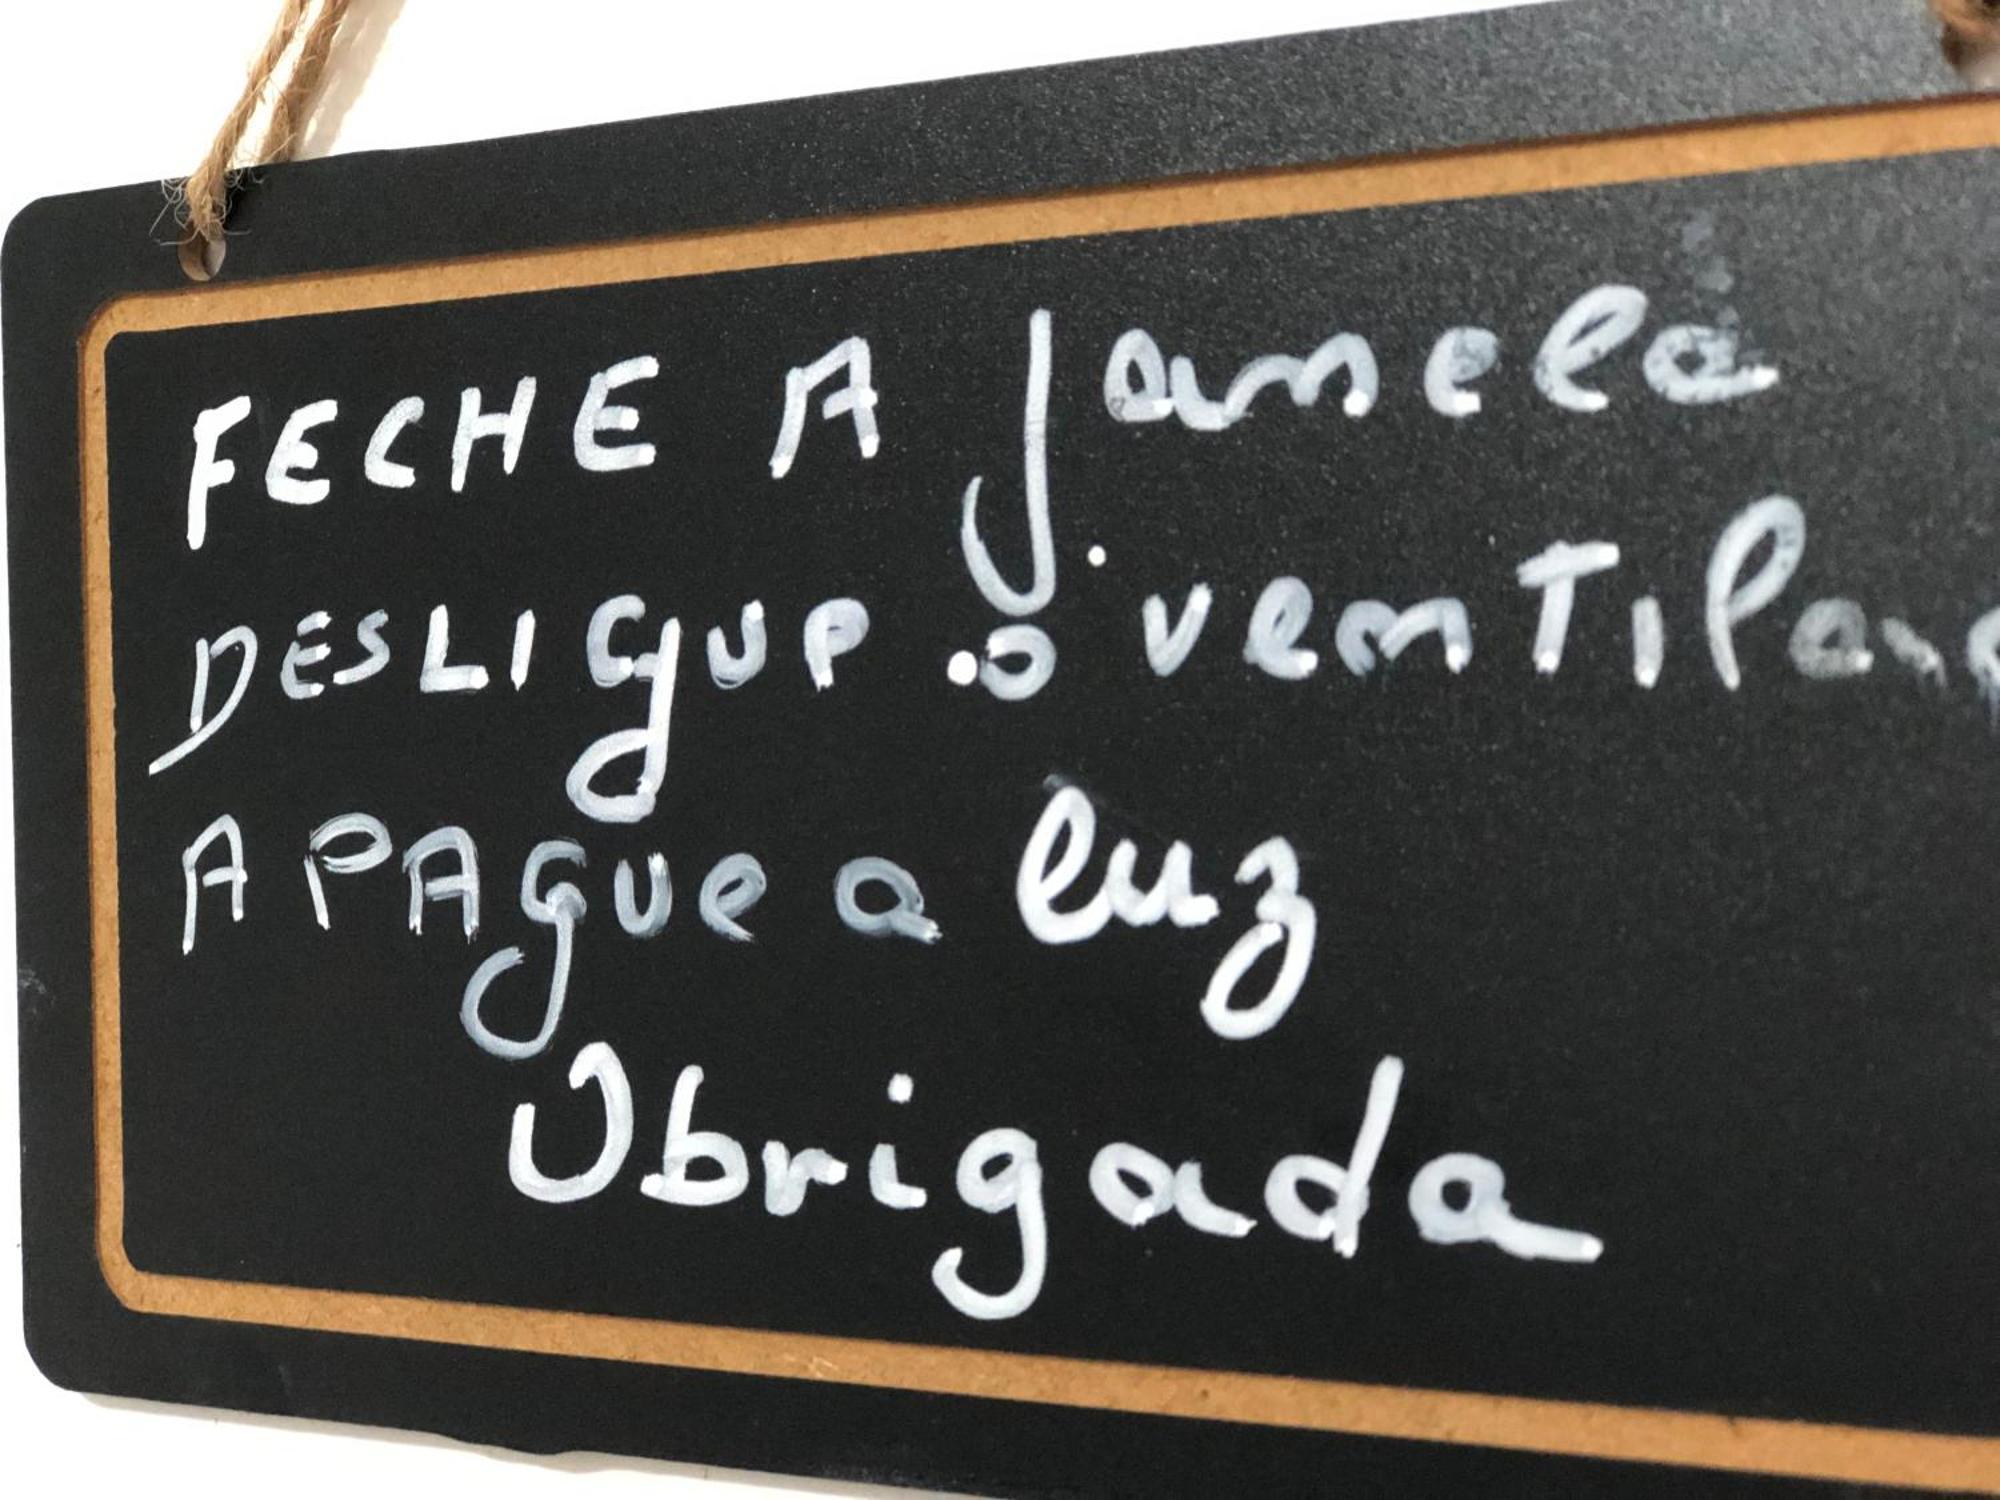 FECHE A janela
DESLIGUE o ventilad
APAGUE a luz
Obrigada